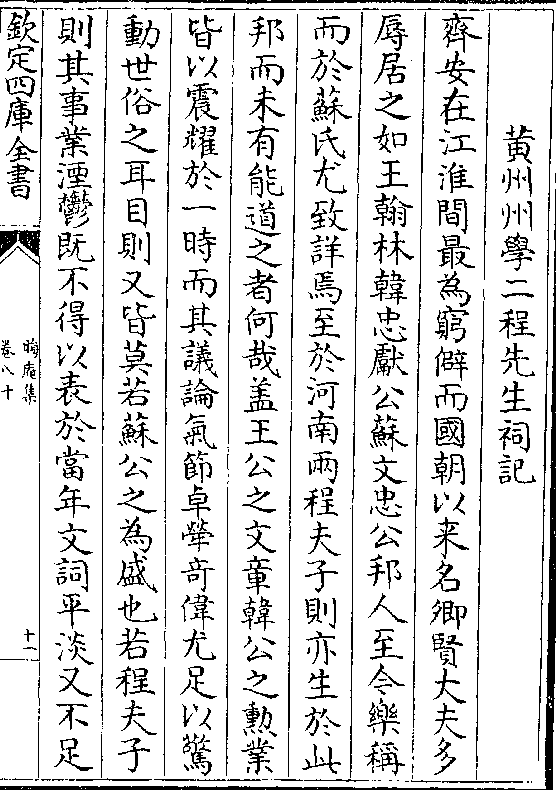 黄州州學二程先生祠記
齊安在江淮間最為窮僻而國朝以来名卿賢大夫多
辱居之如王翰林韓忠獻公蘇文忠公邦人至今樂稱
而於蘇氏尤致詳焉至於河南兩程夫子則亦生於此
邦而未有能道之者何哉盖王公之文章韓公之勲業
皆以震耀於一時而其議論氣節卓犖奇偉尤足以驚
動世俗之耳目則又皆莫若蘇公之為盛也若程夫子
則其事業湮鬱既不得以表於當年文詞平淡又不足
欽定四庫全書
晦庵集
卷八十
十一